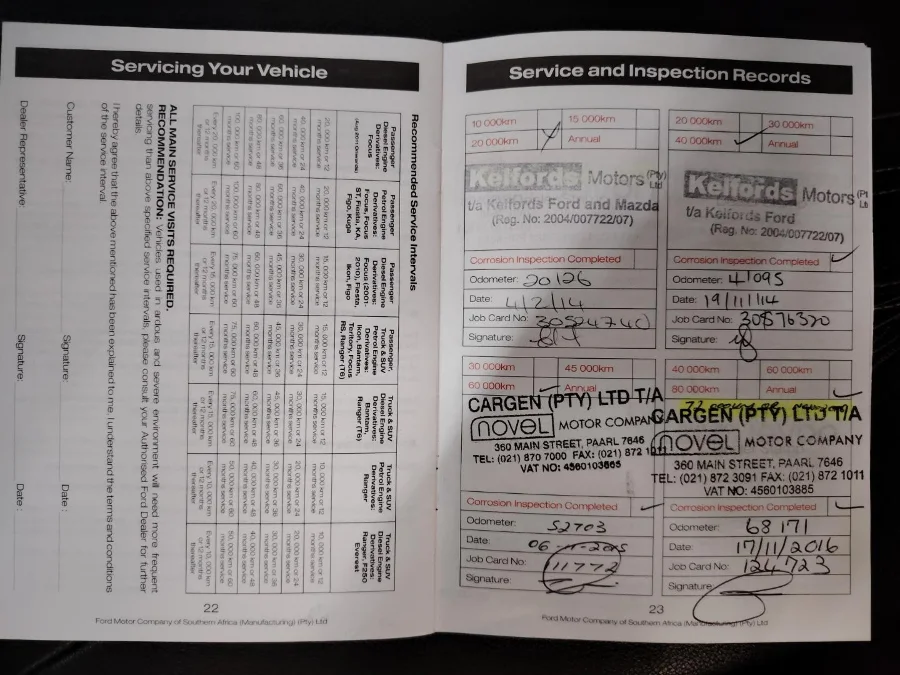 Servicing Your Vehicle
Recommended Service Intervals
Passenger Diesel Engine Derivatives: Focus
(Aug 2011 Onwards)
20, 000 km or 12 months service
40, 000 km or 24 months service
60, 000 km or 36 months service
80, 000 km or 48 months service
100, 000 km or 60 months service
Every 20, 000 km or 12 months thereafter
Passenger Petrol Engine Derivatives: Focus, Focus ST, Fiesta, KA, Figo, Kuga
20, 000 km or 12 months service
40, 000 km or 24 months service
60, 000 km or 36 months service
80, 000 km or 48 months service
100, 000 km or 60 months service
Every 20, 000 km or 12 months thereafter
Passenger Diesel Engine Derivatives: Focus (2001-2010), Fiesta, Ikon, Figo
15, 000 km or 12 months service
30, 000 km or 24 months service
45, 000 km or 36 months service
60, 000 km or 48 months service
75, 000 km or 60 months service
Every 15, 000 km or 12 months thereafter
Passenger, Truck & SUV Petrol Engine Derivatives: Ikon, Bantam, Territory, Focus RS, Ranger (T6)
15, 000 km or 12 months service
30, 000 km or 24 months service
45, 000 km or 36 months service
60, 000 km or 48 months service
75, 000 km or 60 months service
Every 15, 000 km or 12 months thereafter
Truck & SUV Diesel Engine Derivatives: Bantam, Ranger (T6)
15, 000 km or 12 months service
30, 000 km or 24 months service
45, 000 km or 36 months service
60, 000 km or 48 months service
75, 000 km or 60 months service
Every 15, 000 km or 12 months thereafter
Truck & SUV Petrol Engine Derivatives: Ranger
10, 000 km or 12 months service
20, 000 km or 24 months service
30, 000 km or 36 months service
40, 000 km or 48 months service
50, 000 km or 60 months service
Every 10, 000 km or 12 months thereafter
Truck & SUV Diesel Engine Derivatives: Ranger, F250 Everest
10, 000 km or 12 months service
20, 000 km or 24 months service
30, 000 km or 36 months service
40, 000 km or 48 months service
50, 000 km or 60 months service
Every 10, 000 km or 12 months thereafter
ALL MAIN SERVICE VISITS REQUIRED.
RECOMMENDATION: Vehicles used in ardous and severe environment will need more frequent
servicing than above specified service intervals, please consult your Authorised Ford Dealer for further
details.
I hereby agree that the above mentioned has been explained to me. I understand the terms and conditions
of the service interval.
Customer Name: Signature: Date :
Dealer Representative: Signature: Date :
22
Ford Motor Company of Southern Africa (Manufacturing) (Pty) Ltd
Service and Inspection Records
10 000km 15 000km
20 000km Annual
Kelfords Motors (Pty) Ltd
t/a Kelfords Ford and Mazda
(Reg. No: 2004/007722/07)
Corrosion Inspection Completed
Odometer: 20126
Date: 4/2/14
Job Card No:
Signature:
20 000km 30 000km
40 000km Annual
Kelfords Motors
t/a Kelfords Ford
(Reg. No: 2004/007722/07)
Corrosion Inspection Completed
Odometer: 41095
Date: 19/11/14
Job Card No: 30876320
Signature:
30 000km 45 000km
60 000km Annual
CARGEN (PTY) LTD T/A
novel MOTOR COMPANY
360 MAIN STREET, PAARL 7646
TEL: (021) 870 7000 FAX: (021) 872 1011
VAT NO: 4560103885
Corrosion Inspection Completed
Odometer: 52703
Date: 06-11-2015
Job Card No: 11772
Signature:
40 000km 60 000km
80 000km Annual
CARGEN (PTY) LTD T/A
novel MOTOR COMPANY
360 MAIN STREET, PAARL 7646
TEL: (021) 872 3091 FAX: (021) 872 1011
VAT NO: 4560103885
Corrosion Inspection Completed
Odometer: 68171
Date: 17/11/2016
Job Card No: 124723
Signature
23
Ford Motor Company of Southern Africa (Manufacturing) (Pty) Ltd